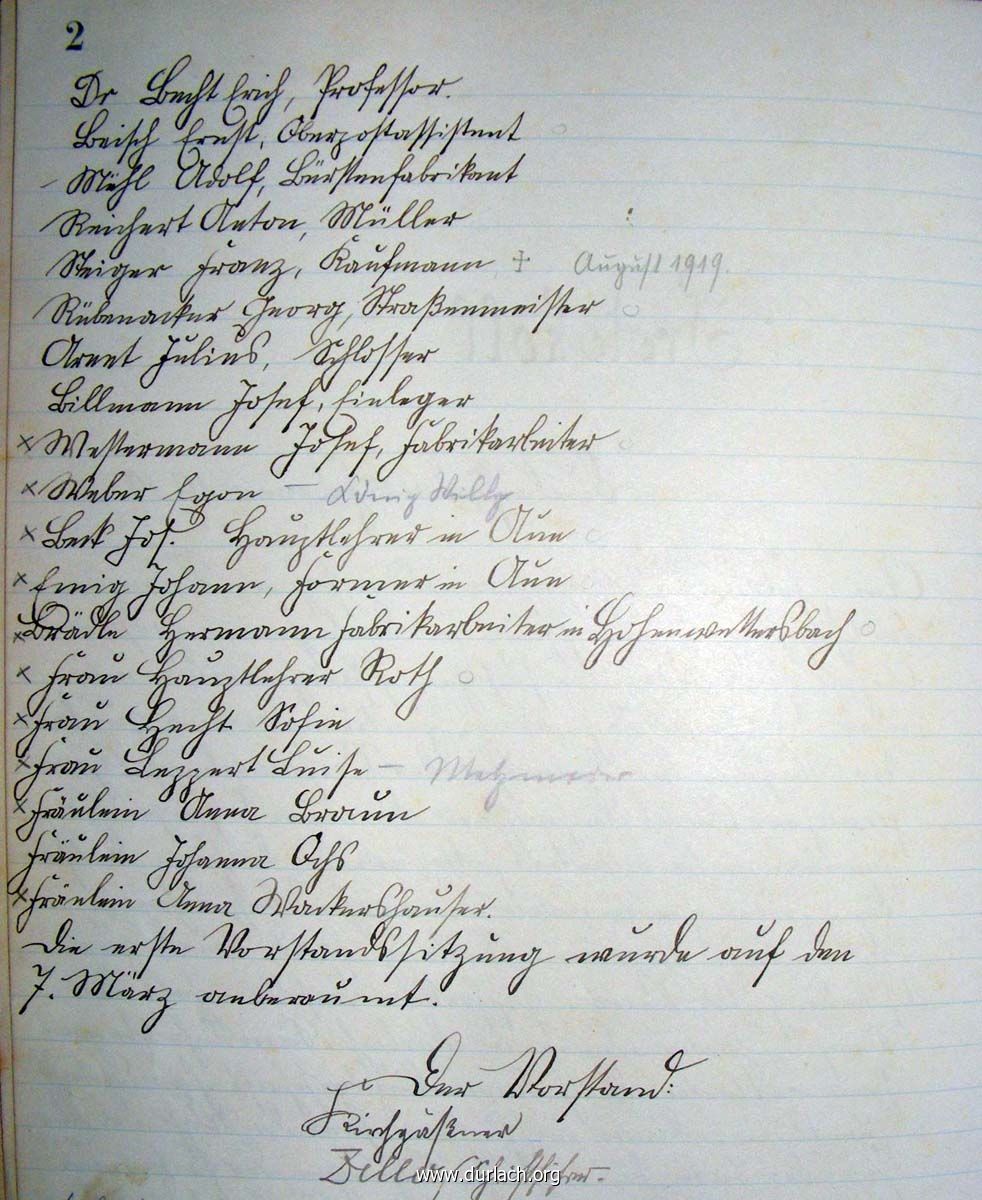 2
Dr Becht Erich, Professor.
Beisch Ernst, Oberpostassistent
Mehl Adolf, Bürstenfabrikant
Reichert Anton, Müller
Steiger Franz, Kaufmann † August 1919.
Rübenacker Georg, Straßenmeister
Arnet Julius, Schlosser
Billmann Josef, Einleger
× Westermann Josef, Fabrikarbeiter
× Weber Egon – König Willy
× Beck Jos. Hauptlehrer in Aue
× Emig Johann, Former in Aue
× Brädle Hermann Fabrikarbeiter in Hohenwettersbach
× Frau Hauptlehrer Roth
× Frau Hecht Sofie
× Frau Leppert Luise – Metzmeier
× Fräulein Anna Braun
Fräulein Johanna Ochs
× Fräulein Anna Wackershauser.
Die erste Vorstandssitzung wurde auf den
7. März anberaumt.
Der Vorstand:
Kirchgäßner
Schriftführer.
www.durlach.org